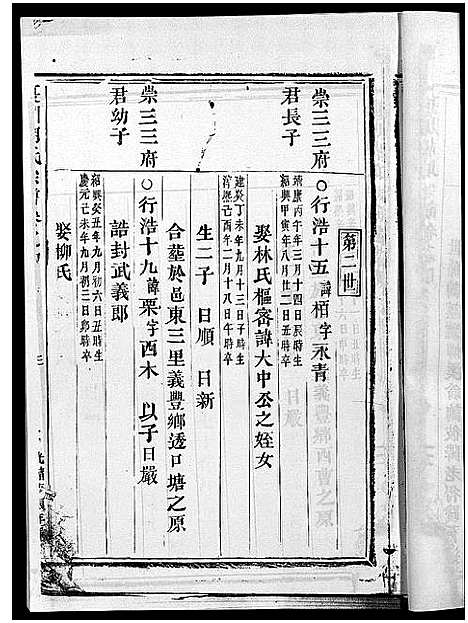 第二世
崇三三府君長子
○行浩十五諱栢字永青
靖康丙午年三月十四日辰時生
紹興甲寅年八月廿二日丑時卒
娶林氏樞密諱大中公之姪女
建炎丁未年九月十三日子時生
慶元己酉年二月十八日午時卒
生二子 日順 日新
合塟於邑東三里義豐鄉透口塘之原
崇三三府君幼子
○行浩十九諱栗字西木 以子日嚴
誥封武義郎
紹興癸丑年九月初六日丑時生
慶元己未年九月初三日卯時卒
娶柳氏